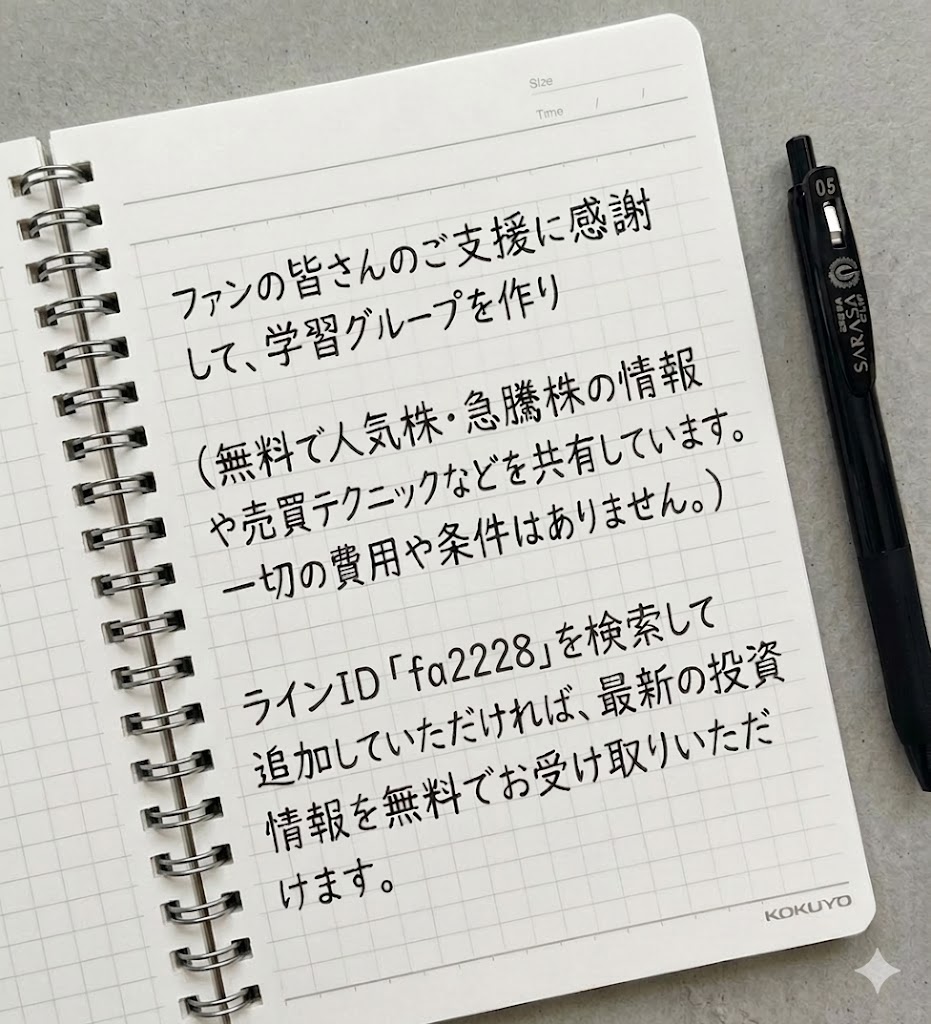 Size
Time / /
ファンの皆さんのご支援に感謝
して、学習グループを作り
(無料で人気株・急騰株の情報
や売買テクニックなどを共有しています。
一切の費用や条件はありません。)
ラインID「fa2228」を検索して
追加していただければ、最新の投資
情報を無料でお受け取りいただ
けます。
KOKUYO
05
SARASA